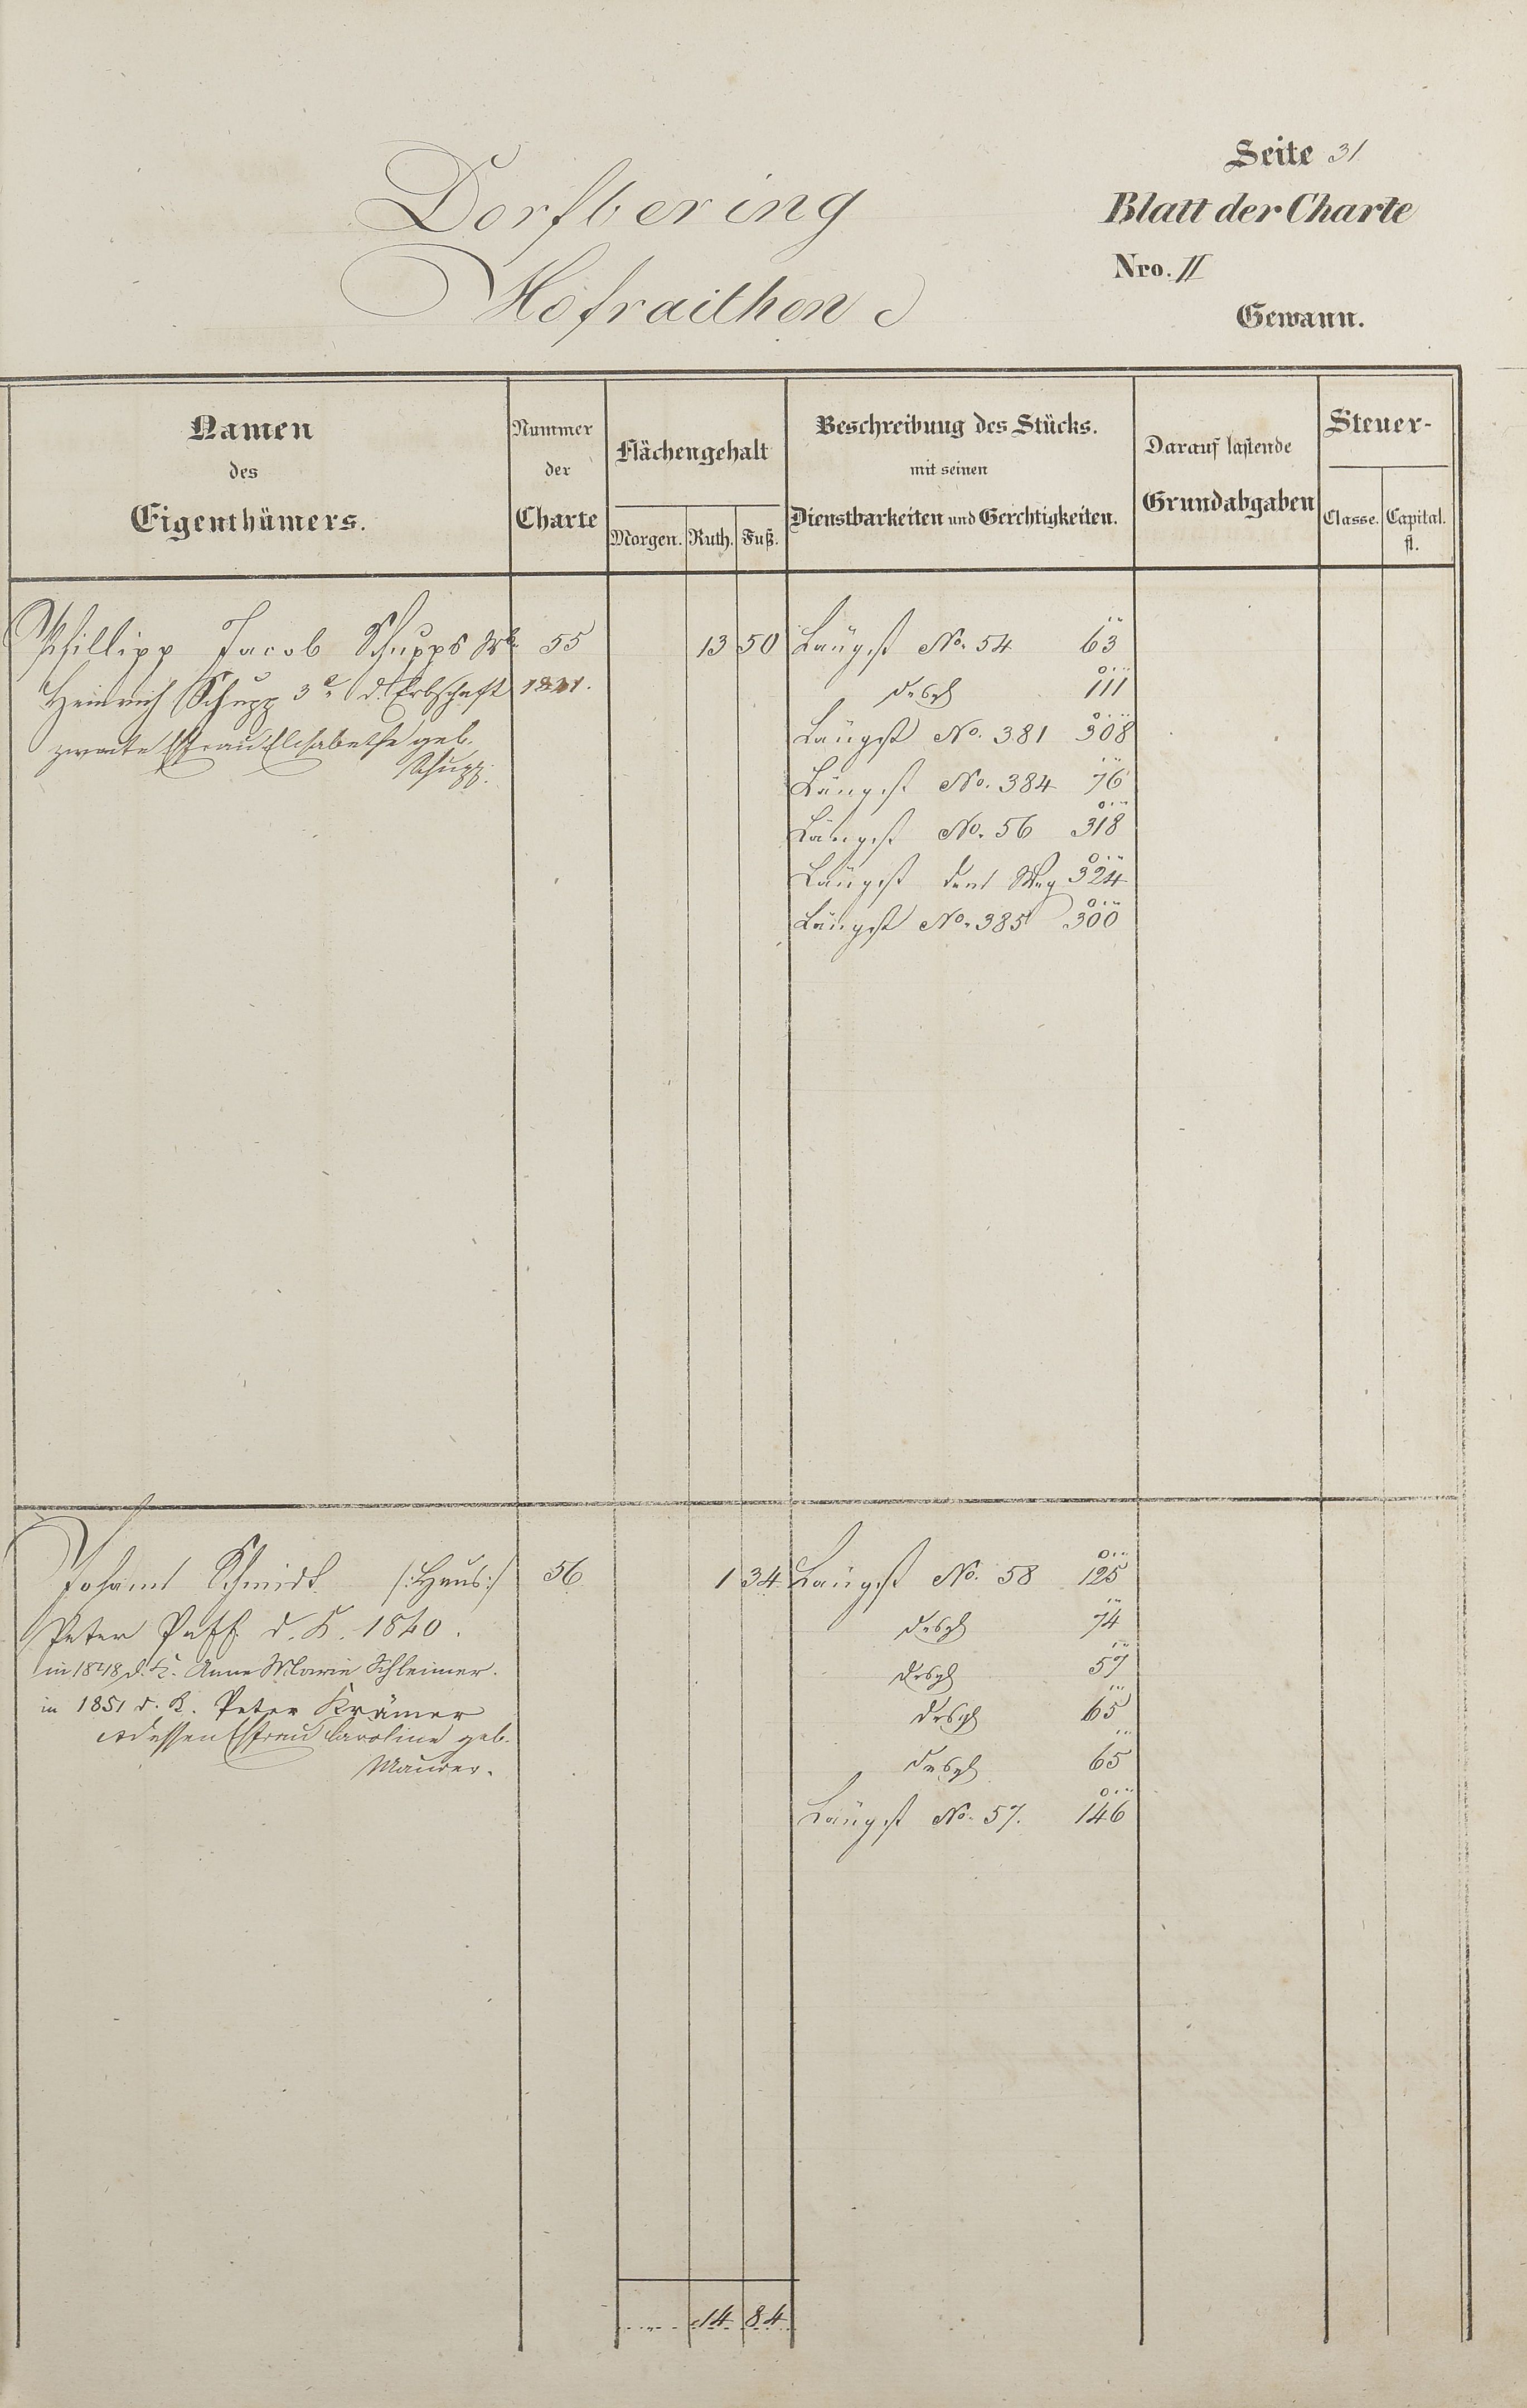 Seite 31
Dorfbering
Blatt der Charte
Hofraithen
Nro. II
Gewann.
Namen
des
Eigenthümers.
Nummer
der
Charte
Flächengehalt
Morgen. Ruth. Fuß.
Beschreibung des Stücks.
mit seinen
Dienstbarkeiten und Gerechtigkeiten.
Darauf lastende
Grundabgaben
Steuer-
Classe. Capital.
fl.
Phillipp Jacob Schupps Wb. 55 13 50 Längst No. 54 63
Heinrich Schupp 3r d. Erbschaft desgl 111
zweite Ehefrau Elisabethe geb. Längst No. 381 308
Schupp. Längst No. 384 76
Längst No. 56 318
Längst dem Weg 324
Längst No. 385 300
Johannt Schmidt /:Haus:/ 56 1 34 Längst No. 58 125
Peter Paff d. K. 1840. desgl 74
in 1848 d. K. Anne Marie Schleimer. desgl 57
in 1851 d. K. Peter Krämer desgl 65
dessen Ehefrau Caroline geb. desgl 65
Maurer. Längst No. 57. 146
14 84